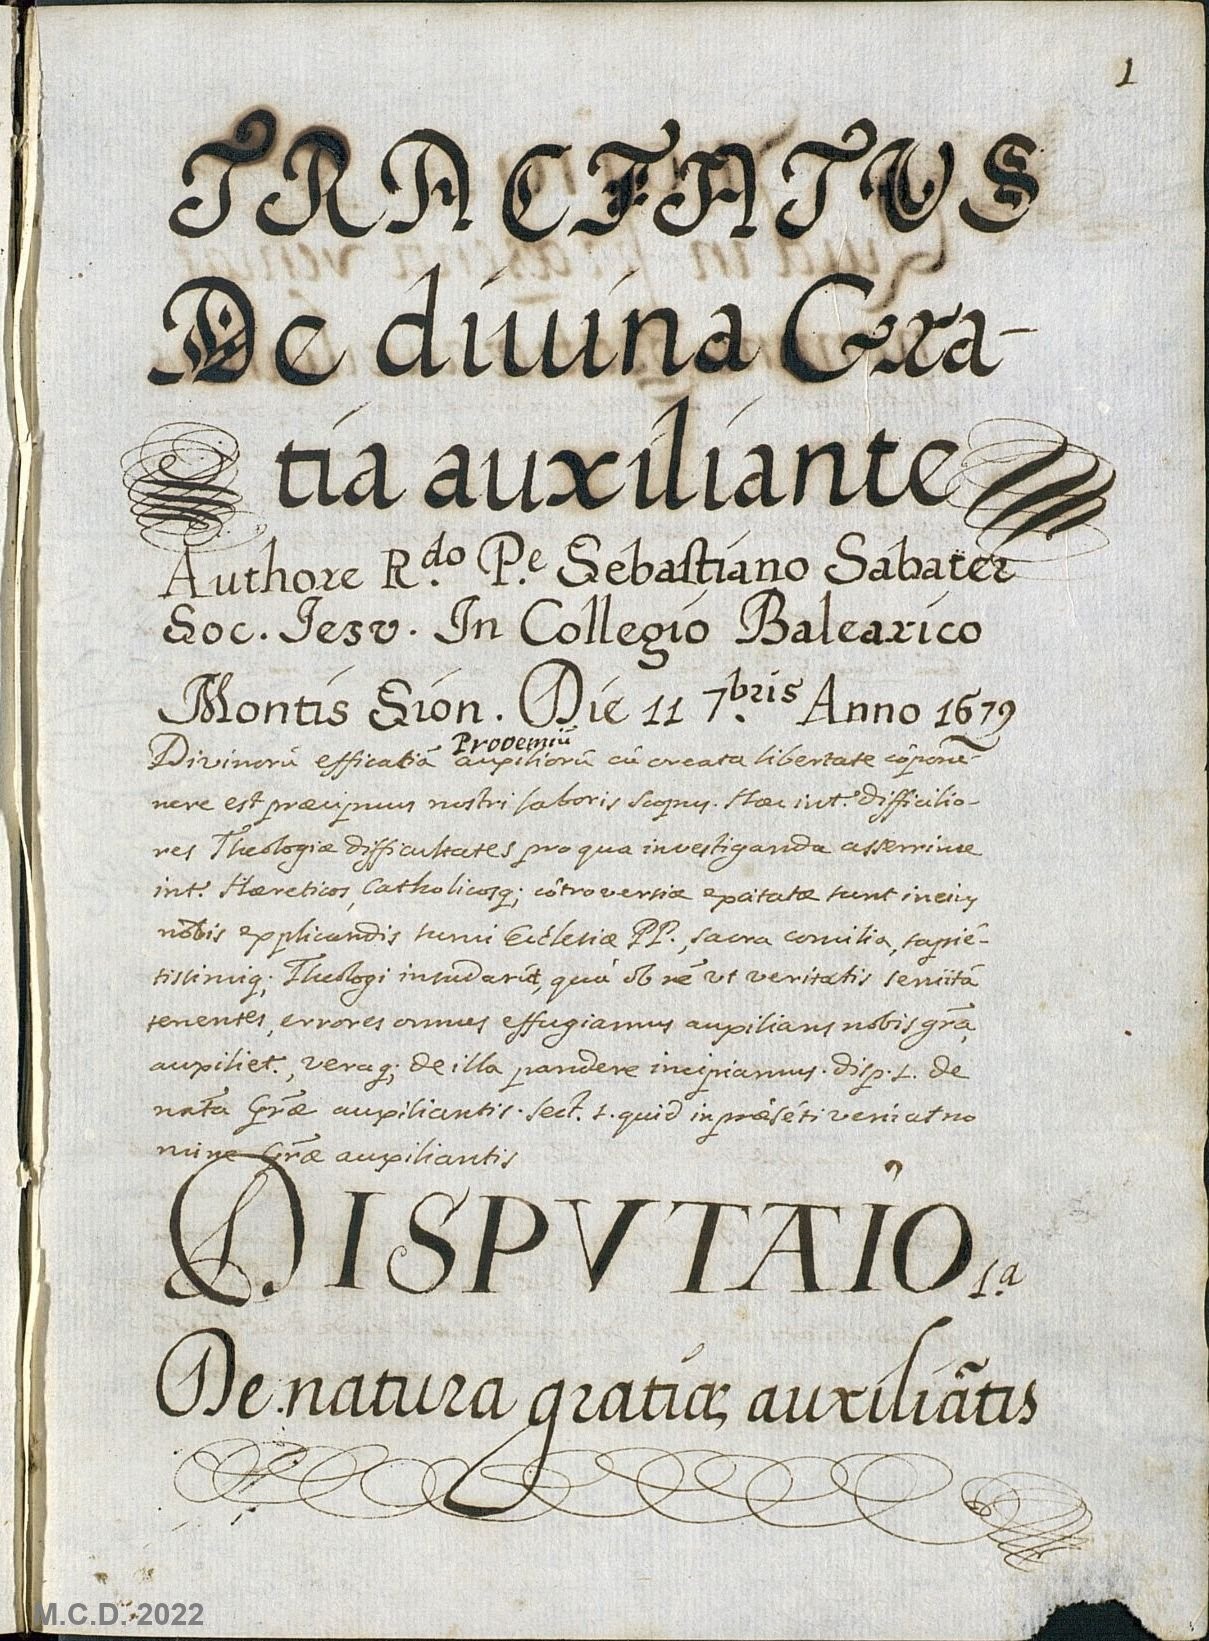 1
TRACTATVS
De diuina Gra-
tia auxiliante
Authore R.do P.e Sebastiano Sabater
Soc. Iesv. In Collegio Balearico
Montis Sion. Die 11 7.bris Anno 1679
Prooemiũ
Divinorũ efficatiã auxiliorũ cũ creata libertate cõpone-
nere est præcipuus nostri laboris scopus. Hæc int.r difficilio-
res Theologiæ difficultates pro qua investiganda acerrime
int.r Hæreticos, Catholicosq; cõtroversiæ excitatæ sunt in eius
nobis explicandis sumi Ecclesiæ PP., sacra concilia, sapiẽ-
tissimiq; Theologi insudarũt, quã ob rẽ vt veritatis semitã
tenentes, errores omnes effugiamus auxilians nobis grã,
auxiliet.r, veraq; de illa pandere incipiamus. disp. 1. de
natã Grãe auxiliantis. sect. 1. quid in præsẽti veniat no
mine Grãe auxiliantis
DISPVTAIO 1.a
De natura gratiæ auxiliãtis
M.C.D. 2022